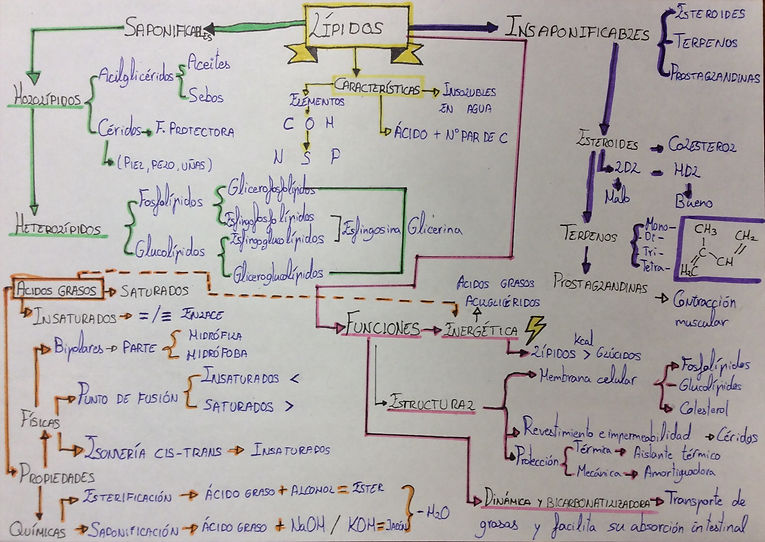 LÍPIDOS
SAPONIFICABLES
INSAPONIFICABLES
ESTEROIDES
TERPENOS
PROSTAGLANDINAS
HOLOLÍPIDOS
Acilglicéridos
Aceites
Sebos
Céridos
F. PROTECTORA
(PIEL, PELO, UÑAS)
CARACTERÍSTICAS
ELEMENTOS
C O H
N S P
INSOLUBLES
EN AGUA
ÁCIDO + Nº PAR DE C
ESTEROIDES
COLESTEROL
LDL
HDL
Malo
Bueno
TERPENOS
Mono-
Di-
Tri-
Tetra-
CH3
CH2
C
CH
H2C
PROSTAGLANDINAS
Contracción
muscular
HETEROLÍPIDOS
Fosfolípidos
Glicerofosfolípidos
Esfingofosfolípidos
Glucolípidos
Esfingoglucolípidos
Gliceroglucolípidos
Esfingosina
Glicerina
ÁCIDOS GRASOS
SATURADOS
INSATURADOS
=/≡ ENLACE
Bipolares
PARTE
HIDRÓFILA
HIDRÓFOBA
PUNTO DE FUSIÓN
INSATURADOS <
SATURADOS >
FÍSICAS
ISOMERÍA CIS-TRANS
INSATURADOS
PROPIEDADES
QUÍMICAS
ESTERIFICACIÓN
ÁCIDO GRASO + ALCOHOL = ESTER
SAPONIFICACIÓN
ÁCIDO GRASO + NaOH / KOH = JABÓN
- H2O
FUNCIONES
ENERGÉTICA
ÁCIDOS GRASOS
ACILGLICÉRIDOS
kcal
LÍPIDOS > GLÚCIDOS
ESTRUCTURAL
Membrana celular
Fosfolípidos
Glucolípidos
Colesterol
Revestimiento e impermeabilidad
Céridos
Protección
Térmica
Aislante térmico
Mecánica
Amortiguadora
DINÁMICA Y BICARBONATILIZADORA
Transporte de
grasas y facilita su absorción intestinal